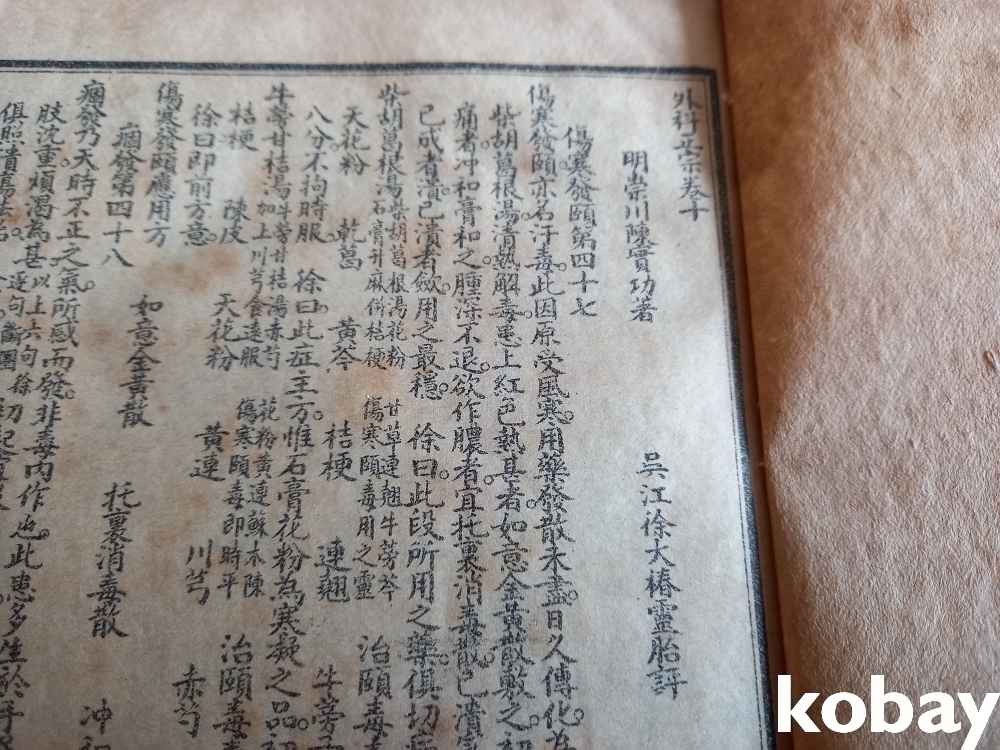 外科正宗卷十
明崇川陳實功著 吳江徐大椿靈胎評
傷寒發頤第四十七
傷寒發頤。亦名汗毒。此因原受風寒。用藥發散未盡。日久傳化為
柴胡葛根湯清熱解毒。患上紅色熱甚者。如意金黃散敷之。初
痛者。沖和膏和之。腫深不退。欲作膿者。宜托裏消毒散。已潰
已成者潰。已潰者斂。用之最穩。 徐曰此段所用之藥。俱切
柴胡葛根湯 柴胡葛根湯花粉 甘草連翹牛蒡芩
石膏升麻併桔梗 傷寒頤毒用之靈 治頤毒
天花粉 乾葛 黃芩 桔梗 連翹 牛蒡
八分不拘時服 徐曰此症主方。惟石膏花粉為寒凝之品。初
牛蒡甘桔湯 牛蒡甘桔湯赤芍 花粉黃連蘇木陳
加上川芎食遠服 傷寒頤毒即時平 治頤毒
桔梗 陳皮 天花粉 黃連 川芎 赤芍
徐曰即前方意。
傷寒發頤應用方
如意金黃散 托裏消毒散 沖
痼發第四十八
痼發乃天時不正之氣。所感而發。非毒內作也。此患多生於手
肢沈重。煩渴為甚。 以上六句徐
逐句斷圈
俱照潰瘍
kobay